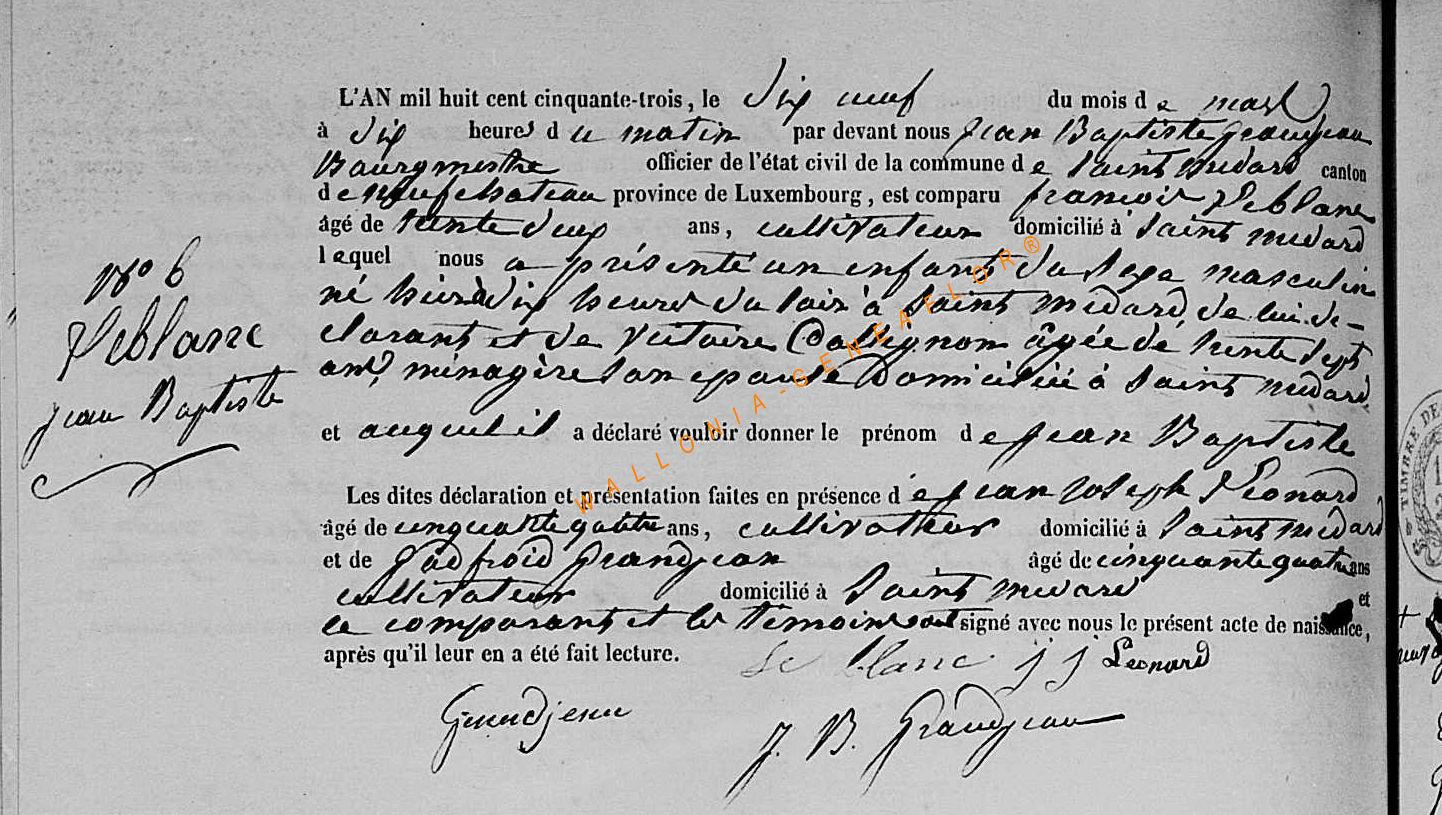 L'AN mil huit cent cinquante-trois, le dix neuf du mois de mars
à dix heures du matin par devant nous Jean Baptiste grandjean
Bourgmestre officier de l'état civil de la commune de Saint médard canton
de neufchateau province de Luxembourg, est comparu françois Leblanc
âgé de trente deux ans, cultivateur domicilié à Saint médard
lequel nous a présenté un enfant du sexe masculin
né hier à dix heures du soir à Saint médard, de lui dé-
clarant et de Victoire agée de trente sept
ans, ménagère son epouse domiciliée à Saint médard
et auquel il a déclaré vouloir donner le prénom de Jean Baptiste
Les dites déclaration et présentation faites en présence de Jean Joseph Léonard
âgé de cinquante quatre ans, cultivateur domicilié à Saint médard
et de Godfroid Grandjean âgé de cinquante quatre ans
cultivateur domicilié à Saint médard et
le comparant et les témoins ont signé avec nous le présent acte de naissance,
après qu'il leur en a été fait lecture.
Le blanc j j Leonard
Grandjean
J. B. Grandjean
N° 6
Leblanc
Jean Baptiste
WALLONIA-GENEAFLOR®
TIMBRE DE